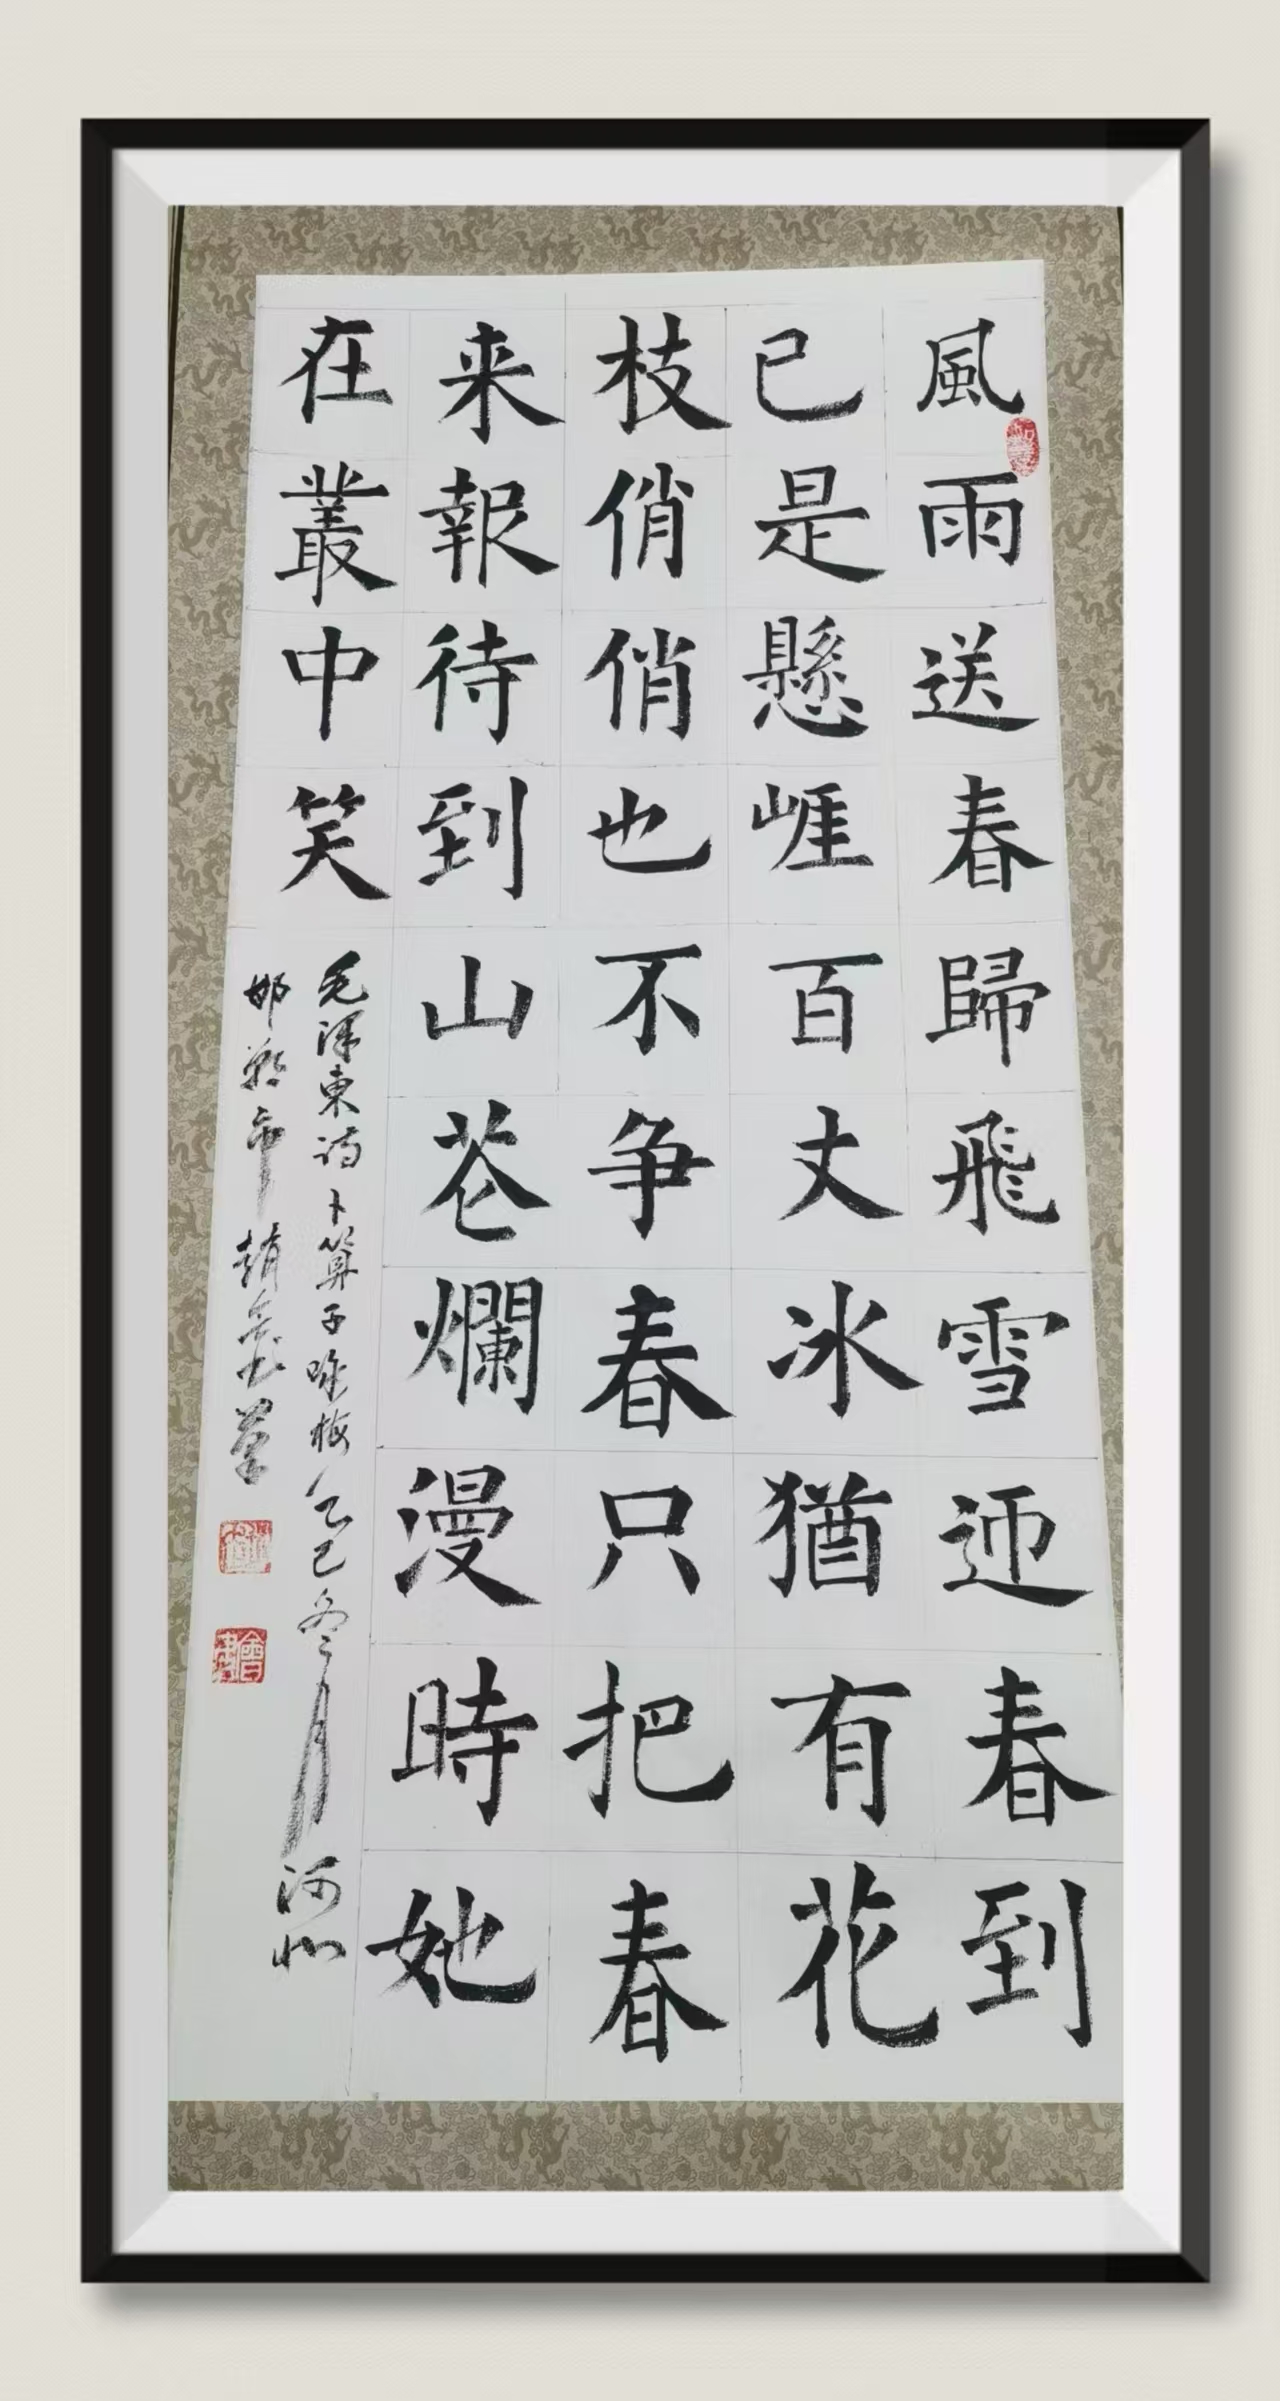 風雨送春歸飛雪迊春到
已是懸崕百丈冰猶有花
枝俏俏也不争春只把春
来報待到山花爛漫時她
在叢中笑
毛泽東诗卜算子咏梅乙巳冬月河北
邯郸市趙